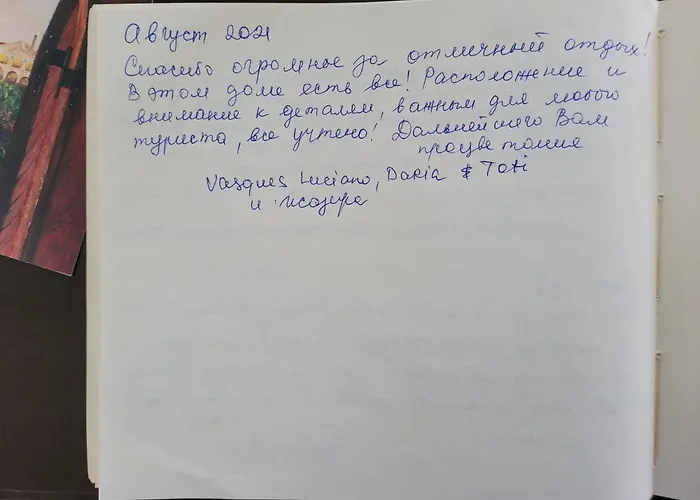 Август 2021
Спасибо огромное за отличный отдых!
В этом доме есть все! Расположение и
внимание к деталям, важным для любого
туриста, все учтено! Дальнейшего Вам
процветания
Vasques Luciano, Daria & Toti
и